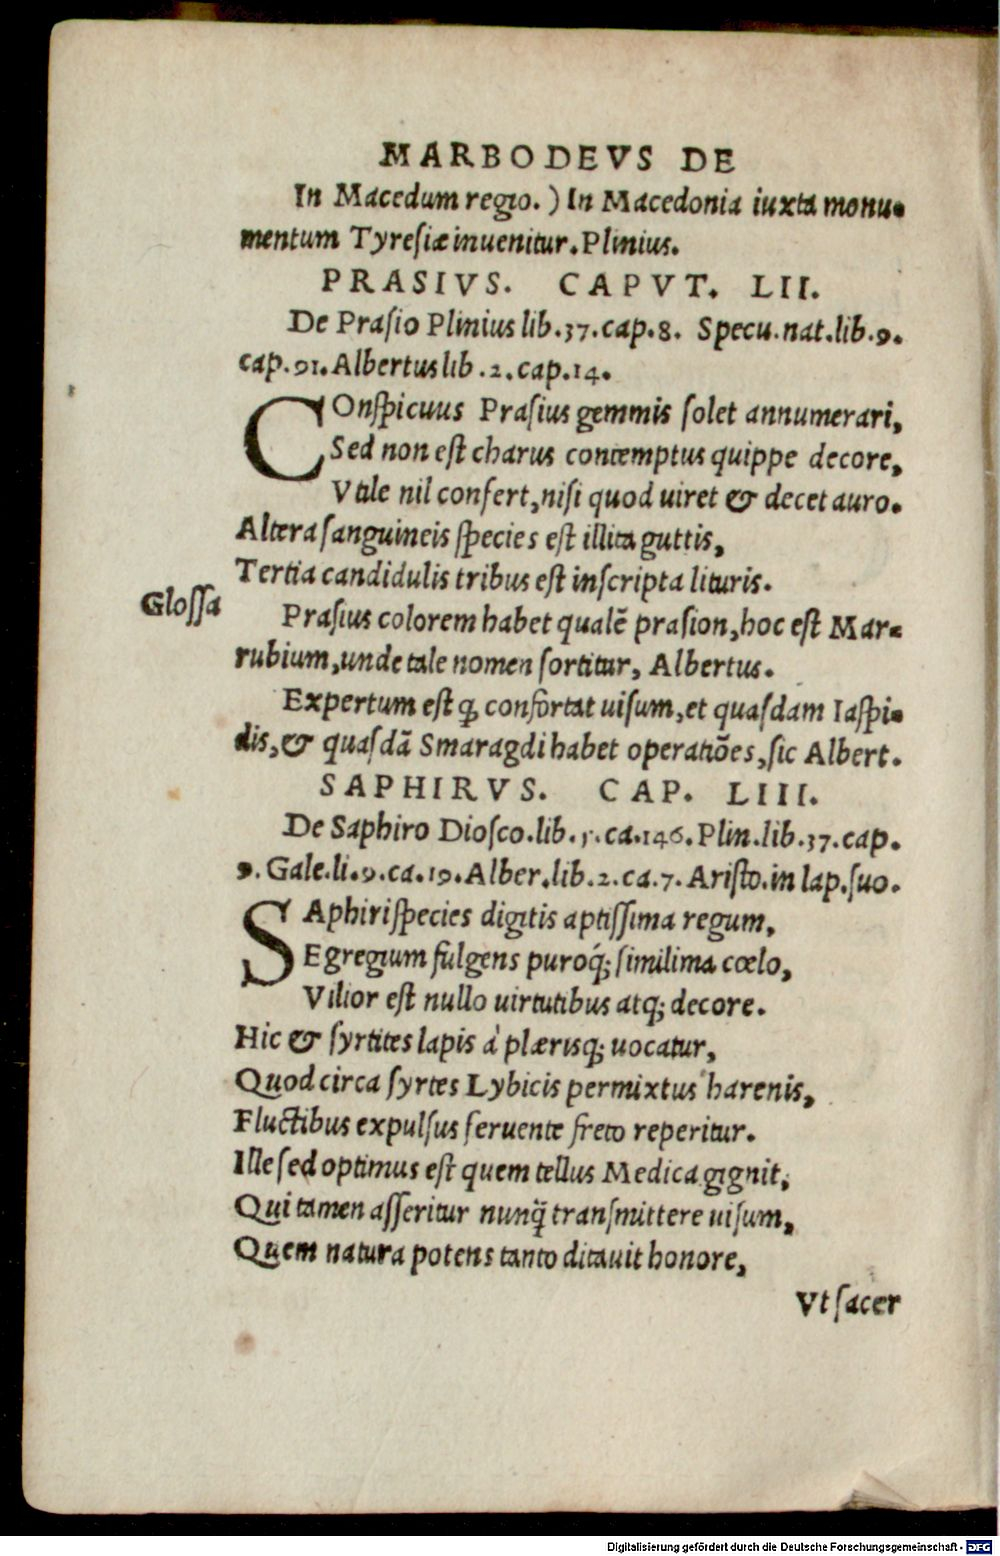 MARBODEVS DE
In Macedum regio.) In Macedonia iuxta monu-
mentum Tyresiæ inuenitur. Plinius.
PRASIVS. CAPVT. LII.
De Praſio Plinius lib.37.cap.8. Specu.nat.lib.9.
cap.91.Albertus lib.2.cap.14.
COnſpicuus Praſius gemmis ſolet annumerari,
Sed non eſt charus contemptus quippe decore,
Vtile nil confert, niſi quod uiret & decet auro.
Altera ſanguineis ſpecies eſt illita guttis,
Tertia candidulis tribus eſt inſcripta lituris.
Gloſſa
Praſius colorem habet qualē praſion, hoc eſt Mar-
rubium, unde tale nomen ſortitur, Albertus.
Expertum eſt ꝙ confortat uiſum, et quaſdam Iaſpi-
dis, & quaſdā Smaragdi habet operatiōes, ſic Albert.
SAPHIRVS. CAP. LIII.
De Saphiro Dioſco.lib.5.ca.146.Plin.lib.37.cap.
9.Gale.li.9.ca.19.Alber.lib.2.ca.7.Ariſto.in lap.ſuo.
SAphiri ſpecies digitis aptiſſima regum,
Egregium fulgens puroq́; ſimilima cœlo,
Vilior eſt nullo uirtutibus atq; decore.
Hic & ſyrtites lapis à plæriſq; uocatur,
Quod circa ſyrtes Lybicis permixtus harenis,
Fluctibus expulſus feruente freto reperitur.
Ille ſed optimus eſt quem tellus Medica gignit,
Qui tamen aſſeritur nunq̄ tranſmittere uiſum,
Quem natura potens tanto ditauit honore,
Vt ſacer
Digitalisierung gefördert durch die Deutsche Forschungsgemeinschaft - DFG